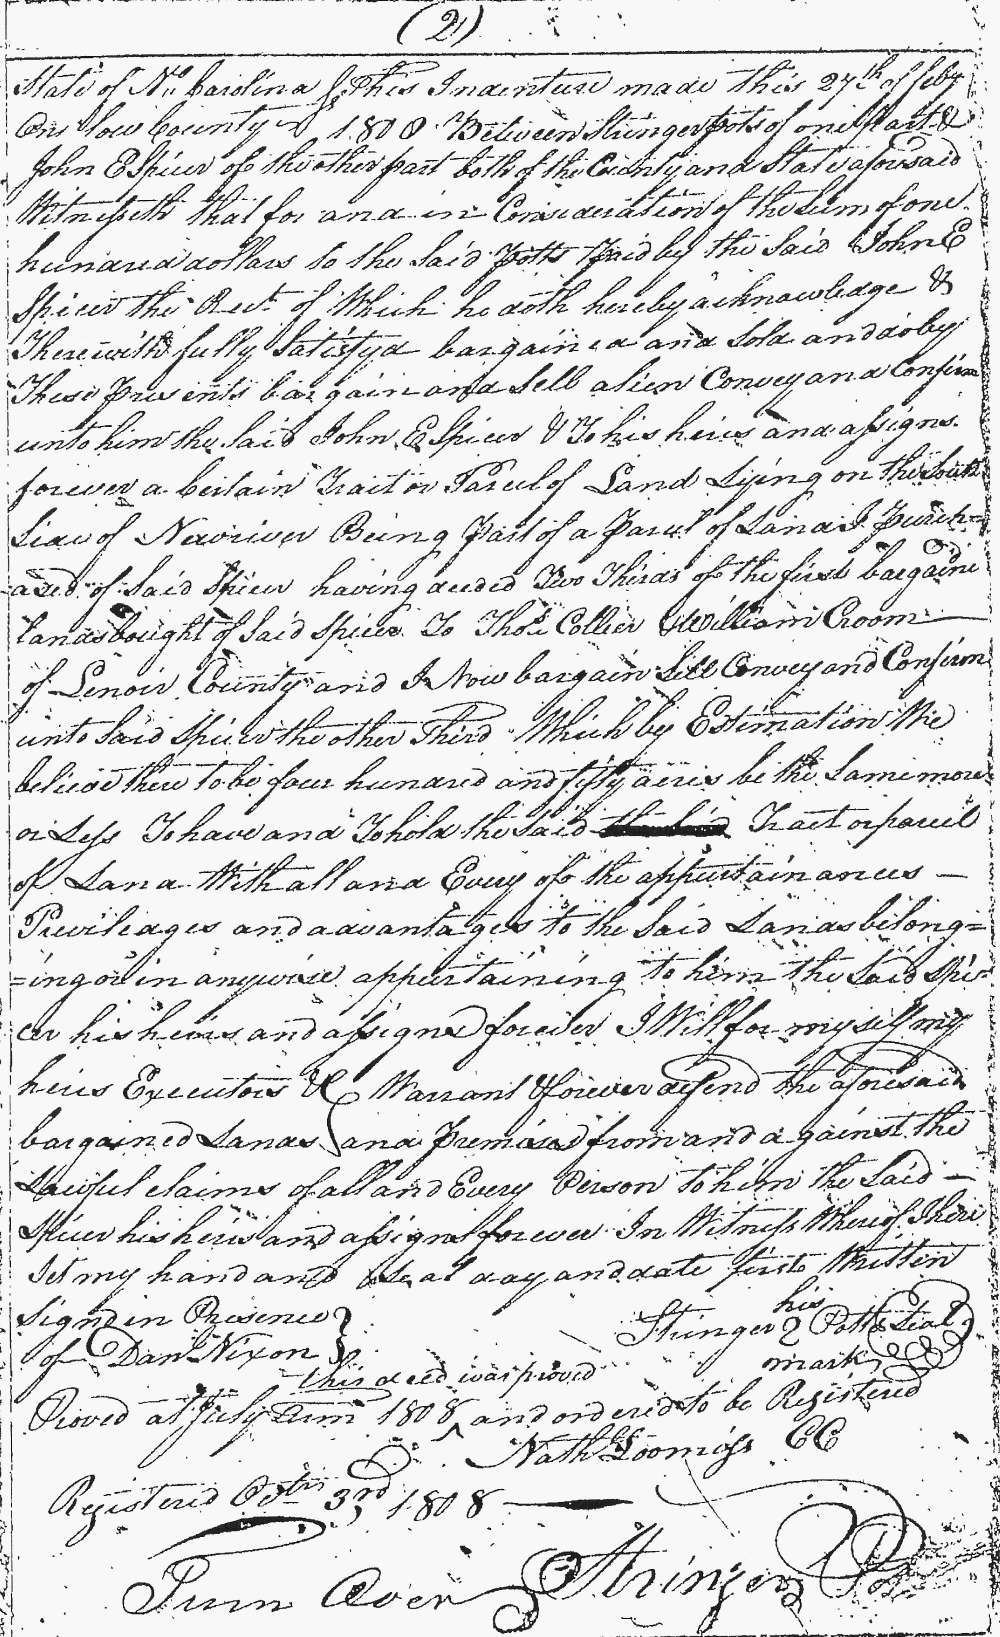 (2)
State of No. Carolina } This Indenture made this 27th of feby
Onslow County } 1808 Between Stringer pots of one part &
John E Spicer of the other part both of the County and State aforesaid
Witnesseth that for and in Consideration of the Sum of one
hundred dollars to the Said Potts Paid by the Said John E
Spicer the Rect. of Which he doth hereby acknowledge &
Therewith fully Satisfyd bargained and Sold and do by
These presents bargain and Sell alien Convey and Confirm
unto him the Said John E Spicer & To his heirs and assigns
forever a Certain Tract or Parcel of Land Lying on the South
Side of Newriver Being Part of a Parcel of Land I Purch=
ased of Said Spicer having deeded Two Thirds of the first bargaind
lands bought of Said Spicer To Thos. Collier & William Croom
of Lenoir County and I Now bargain Sell Convey and Confirm
unto Said Spicer the other Third Which by Estimation We
believe there to be four hundred and fifty acres be the Same more
or Less To have and To hold the Said the Said Tract or parcel
of Land With all and Every of the appurtainances
Privileages and advantages to the Said Lands belong=
=ing or in anywise appertaining to him the Said Spi=
cer his heirs and assigns forever I Will for my self my
heirs Executors &C Warrant & forever defend the aforesaid
bargained Lands and Premised from and against the
Lawful claims of all and Every Person to him the Said
Spicer his heirs and assigns forever In Witness Whereof I here
Set my hand and Seal day and date first Written
Signd in Presence } his
of Danl Nixon } Stringer Potts Seal
mark
this deed was proved
Proved at July Term 1808 ^ and ordered to be Registered
Nath Loomiss CC
Registered Octr 3rd 1808
Turn Over Stringer Pots